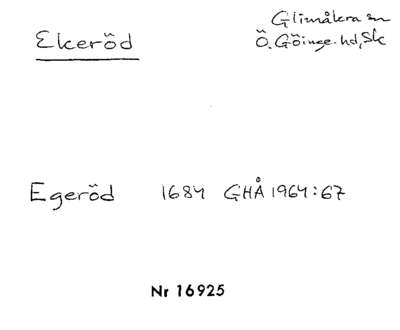 Ekeröd
Glimåkra sn
Ö. Göinge hd, Sk
Egeröd 1684 GHÅ 1964:67
Nr 16925